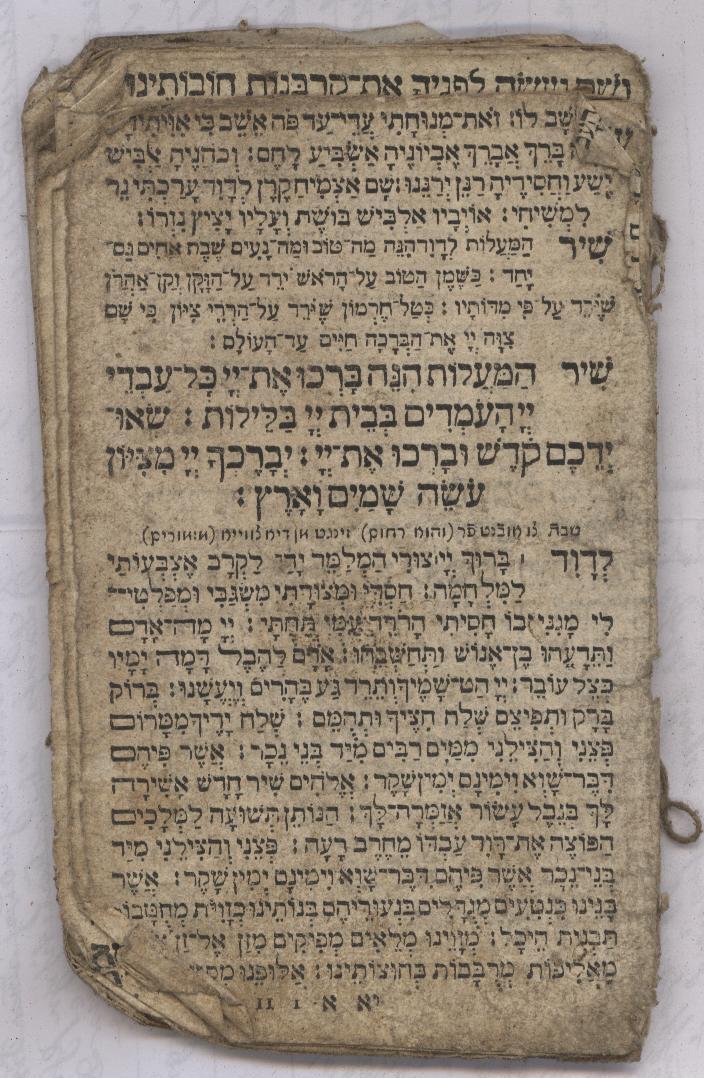 ושם נעשה לפניך את־קרבנות חובותינו
לוֹ: זֹאת־מְנוּחָתִי עֲדֵי־עַד פֹּה אֵשֵׁב כִּי אִוִּיתִיהָ
בָּרֵךְ אֲבָרֵךְ אֶבְיוֹנֶיהָ אַשְׂבִּיעַ לָחֶם: וְכֹהֲנֶיהָ אַלְבִּישׁ
יֶשַׁע וַחֲסִידֶיהָ רַנֵּן יְרַנֵּנוּ: שָׁם אַצְמִיחַ קֶרֶן לְדָוִד עָרַכְתִּי נֵר
לִמְשִׁיחִי: אוֹיְבָיו אַלְבִּישׁ בּוֹשֶׁת וְעָלָיו יָצִיץ נִזְרוֹ:
שִׁיר הַמַּעֲלוֹת לְדָוִד הִנֵּה מַה־טּוֹב וּמַה־נָּעִים שֶׁבֶת אַחִים גַּם־
יָחַד: כַּשֶּׁמֶן הַטּוֹב עַל־הָרֹאשׁ יֹרֵד עַל־הַזָּקָן זְקַן־אַהֲרֹן
שֶׁיֹּרֵד עַל־פִּי מִדּוֹתָיו: כְּטַל־חֶרְמוֹן שֶׁיֹּרֵד עַל־הַרְרֵי צִיּוֹן כִּי שָׁם
צִוָּה יְיָ אֶת־הַבְּרָכָה חַיִּים עַד־הָעוֹלָם:
שִׁיר הַמַּעֲלוֹת הִנֵּה בָּרְכוּ אֶת־יְיָ כָּל־עַבְדֵי
יְיָ הָעֹמְדִים בְּבֵית יְיָ בַּלֵּילוֹת: שְׂאוּ־
יְדֵכֶם קֹדֶשׁ וּבָרְכוּ אֶת־יְיָ: יְבָרֶכְךָ יְיָ מִצִּיּוֹן
עֹשֵׂה שָׁמַיִם וָאָרֶץ:
(והוא רחום)
לְדָוִד בָּרוּךְ יְיָ צוּרִי הַמְלַמֵּד יָדַי לַקְרָב אֶצְבְּעוֹתַי
לַמִּלְחָמָה: חַסְדִּי וּמְצוּדָתִי מִשְׂגַּבִּי וּמְפַלְטִי־
לִי מָגִנִּי וּבוֹ חָסִיתִי הָרֹדֵד עַמִּי תַחְתָּי: יְיָ מָה־אָדָם
וַתֵּדָעֵהוּ בֶּן־אֱנוֹשׁ וַתְּחַשְּׁבֵהוּ: אָדָם לַהֶבֶל דָּמָה יָמָיו
כְּצֵל עוֹבֵר: יְיָ הַט־שָׁמֶיךָ וְתֵרֵד גַּע בֶּהָרִים וְיֶעֱשָׁנוּ: בְּרוֹק
בָּרָק וּתְפִיצֵם שְׁלַח חִצֶּיךָ וּתְהֻמֵּם: שְׁלַח יָדֶיךָ מִמָּרוֹם
פְּצֵנִי וְהַצִּילֵנִי מִמַּיִם רַבִּים מִיַּד בְּנֵי נֵכָר: אֲשֶׁר פִּיהֶם
דִּבֶּר־שָׁוְא וִימִינָם יְמִין שָׁקֶר: אֱלֹהִים שִׁיר חָדָשׁ אָשִׁירָה
לָּךְ בְּנֵבֶל עָשׂוֹר אֲזַמְּרָה־לָּךְ: הַנּוֹתֵן תְּשׁוּעָה לַמְּלָכִים
הַפּוֹצֶה אֶת־דָּוִד עַבְדּוֹ מֵחֶרֶב רָעָה: פְּצֵנִי וְהַצִּילֵנִי מִיַּד
בְּנֵי־נֵכָר אֲשֶׁר פִּיהֶם דִּבֶּר־שָׁוְא וִימִינָם יְמִין שָׁקֶר: אֲשֶׁר
בָּנֵינוּ כִּנְטִעִים מְגֻדָּלִים בִּנְעוּרֵיהֶם בְּנוֹתֵינוּ כְזָוִיֹּת מְחֻטָּבוֹת
תַּבְנִית הֵיכָל: מְזָוֵינוּ מְלֵאִים מְפִיקִים מִזַּן אֶל־זַן
מַאֲלִיפוֹת מְרֻבָּבוֹת בְּחוּצוֹתֵינוּ: אַלּוּפֵינוּ
יא א 1 11